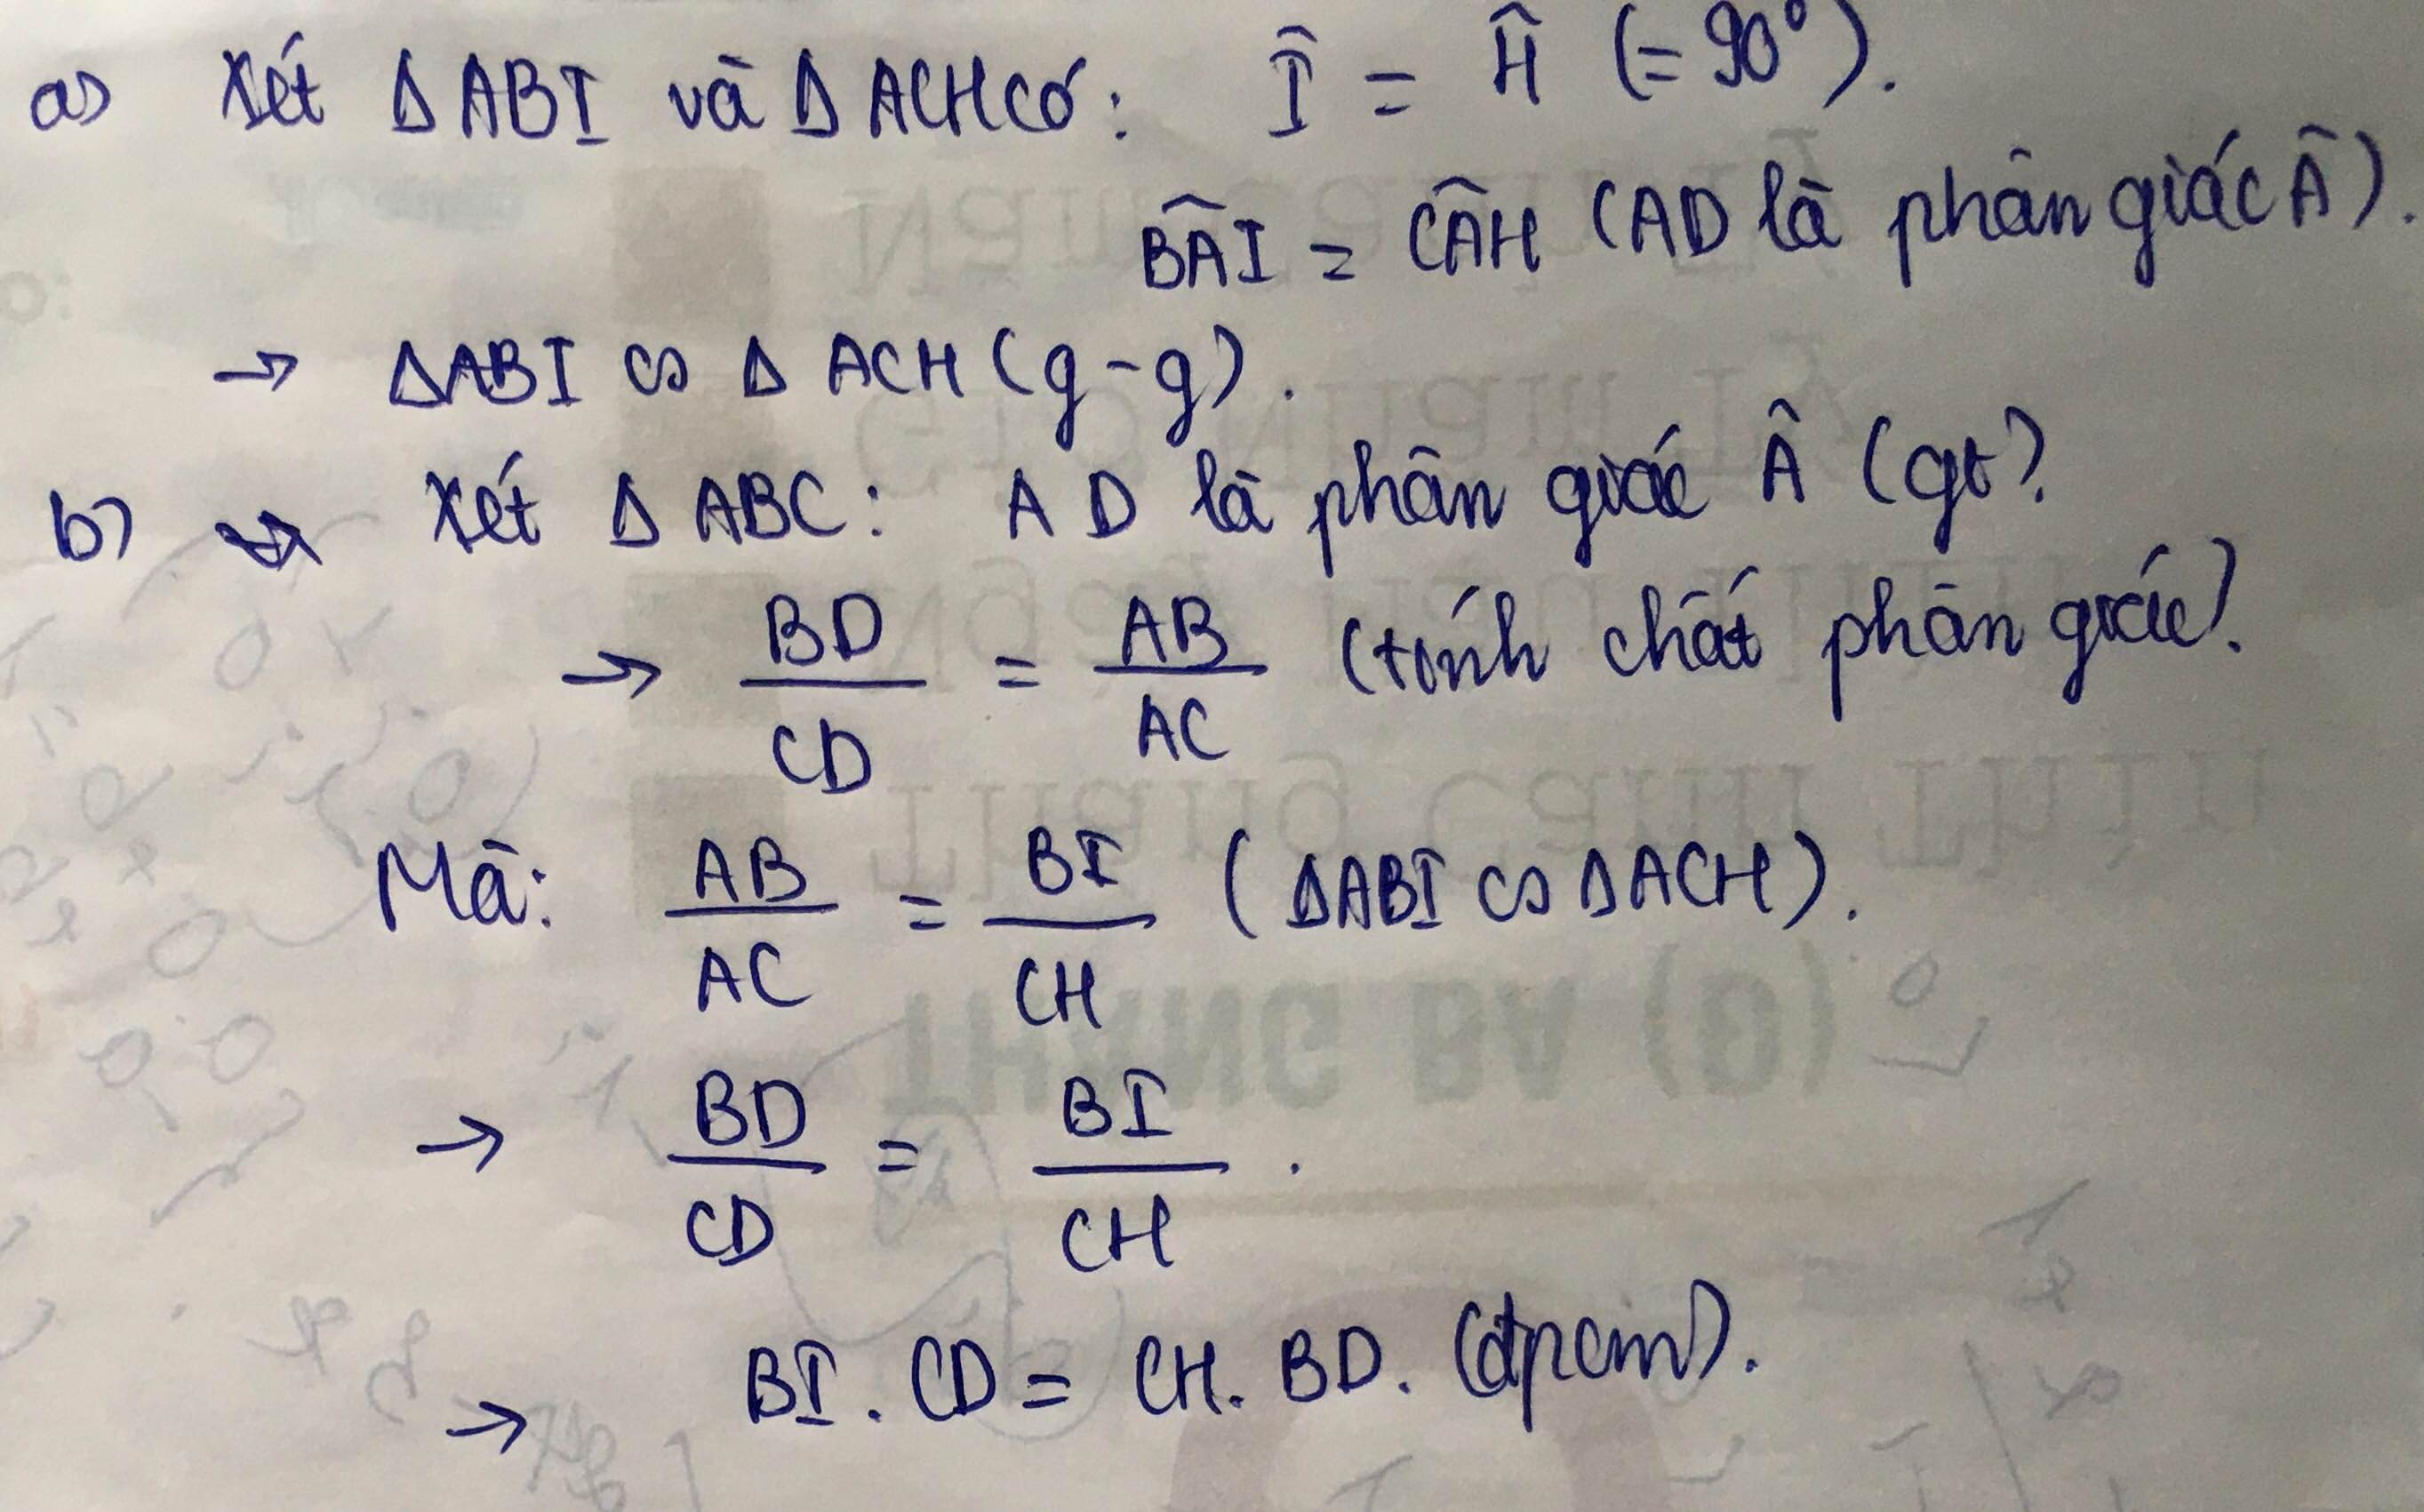 a) Xét ΔABI và ΔACH có: Î = Ĥ (= 90°).
BÂI = CÂH (AD là phân giác Â).
→ ΔABI ∽ ΔACH (g-g).
b) Xét ΔABC: AD là phân giác Â (gt)
→ BD/CD = AB/AC (tính chất phân giác).
Mà: AB/AC = BI/CH (ΔABI ∽ ΔACH).
→ BD/CD = BI/CH.
→ BI . CD = CH. BD. (đpcm).
THÁNG BA (Đ)